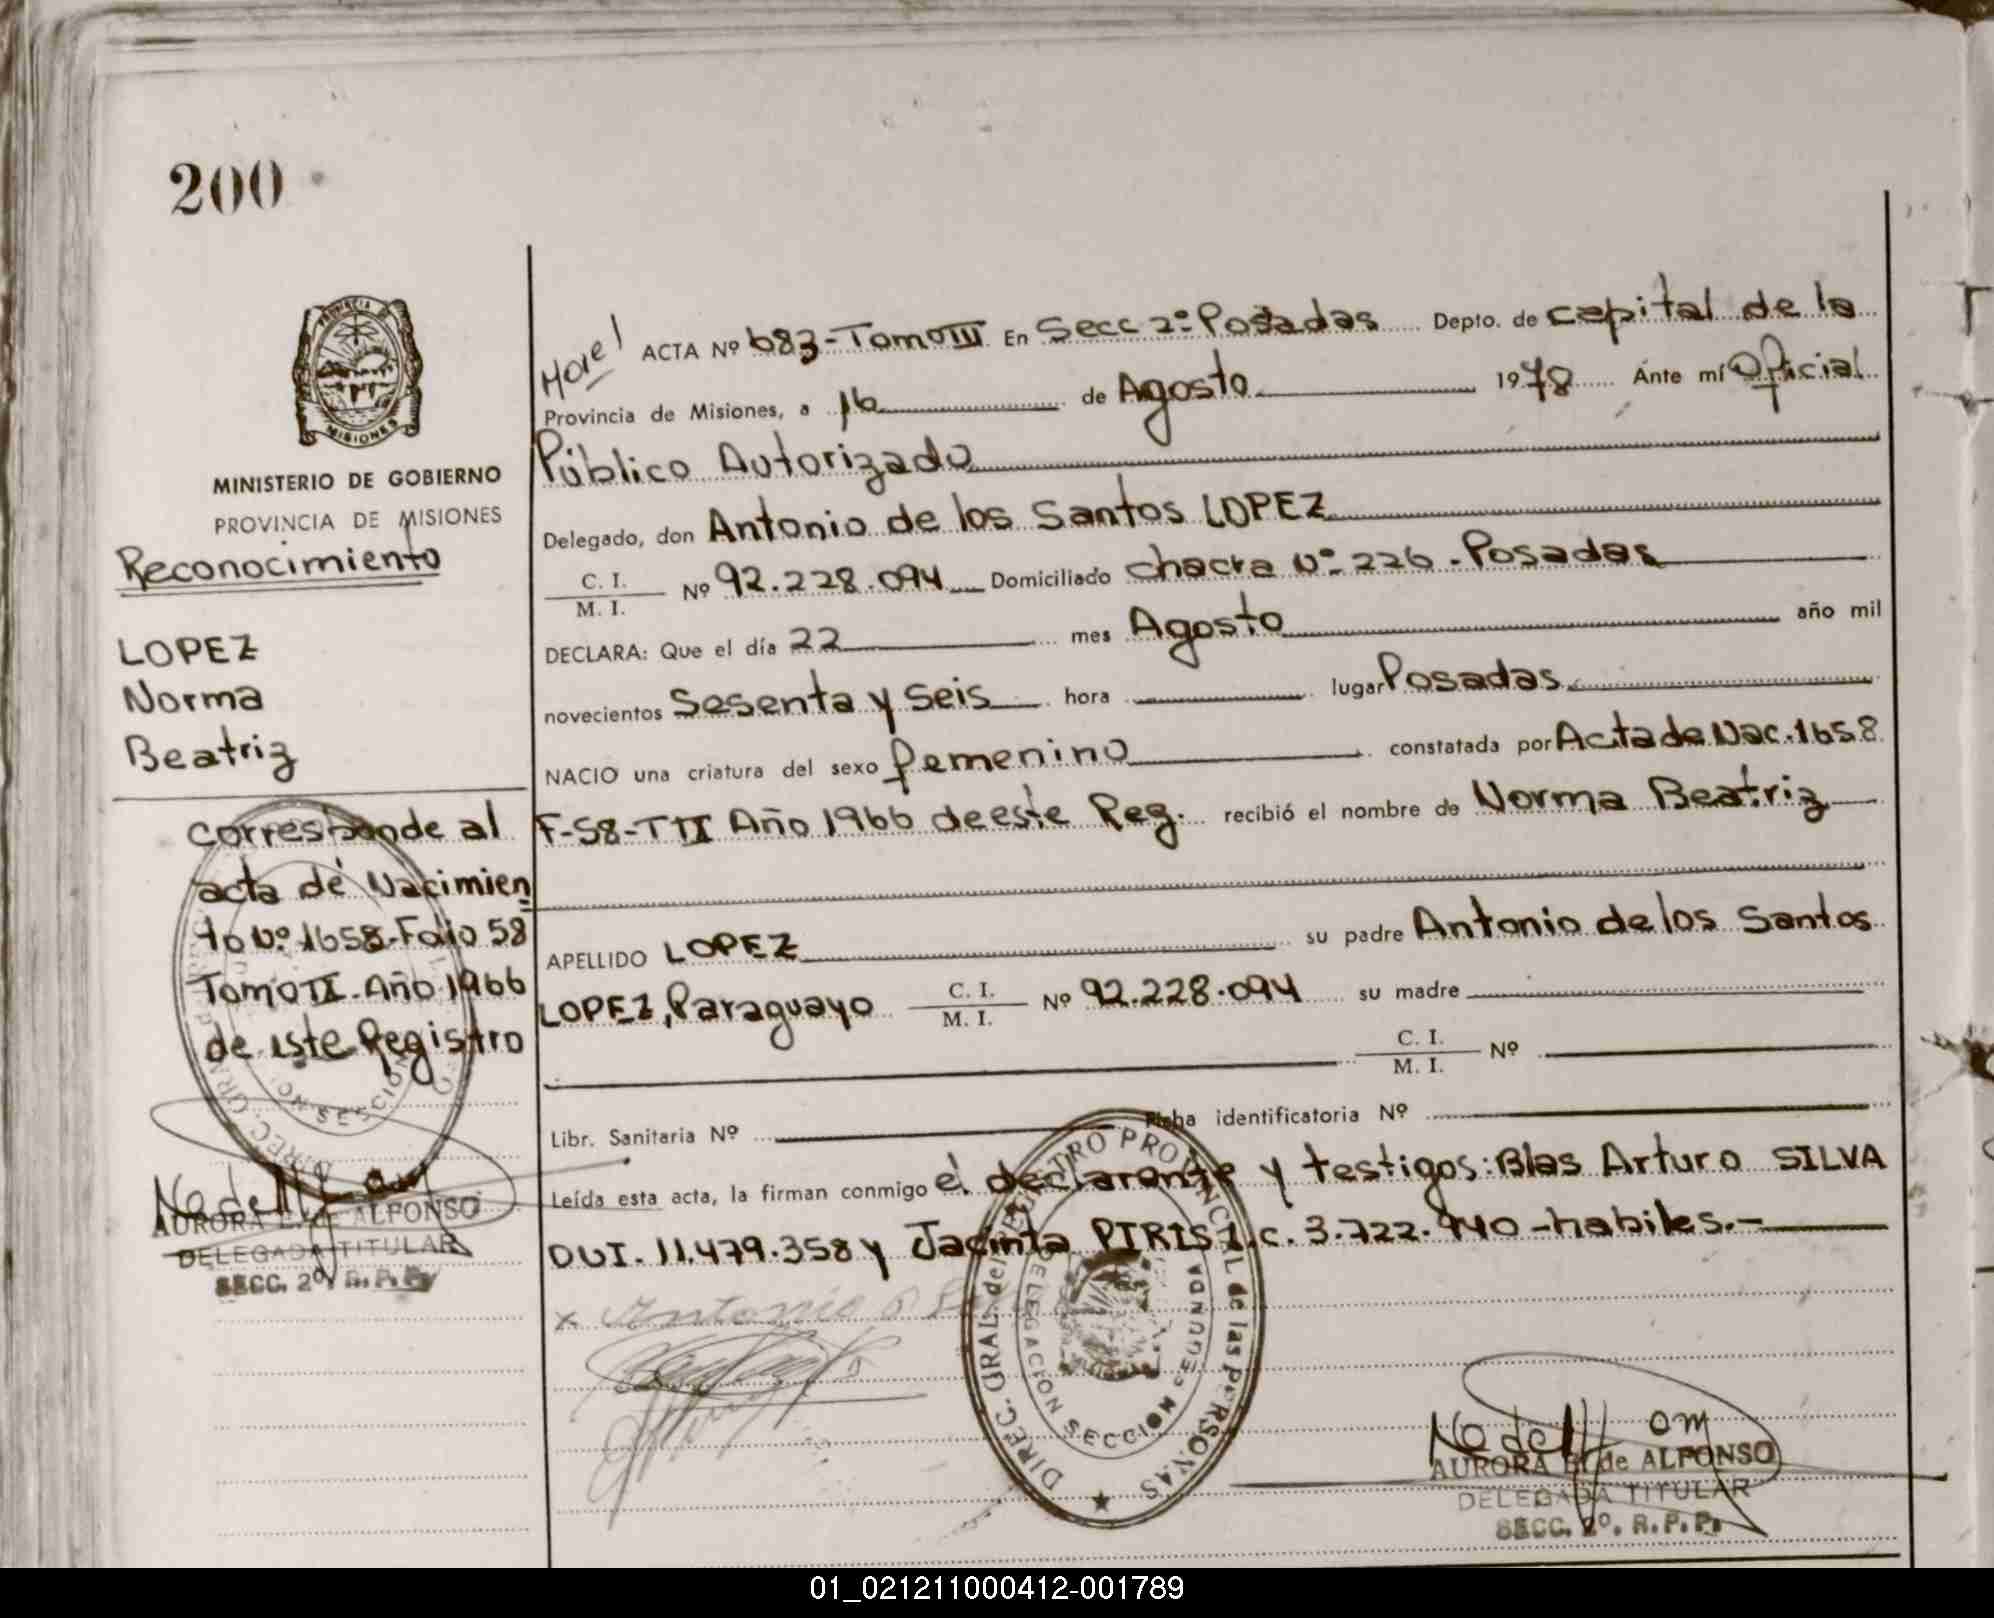 200
PROVINCIA DE
MISIONES
MINISTERIO DE GOBIERNO
PROVINCIA DE MISIONES
Reconocimiento
LOPEZ
Norma
Beatriz
Corresponde al
acta de Nacimien
to Nº 1658-Folio 58
Tomo II. Año 1966
de este Registro
AURORA de ALFONSO
DELEGADA TITULAR
SECC. 2º. R. P. P.
ACTA Nº 683-Tomo III En Secc 2º Posadas Depto. de Capital de la
Provincia de Misiones, a 16 de Agosto 1978 Ante mí Oficial
Público Autorizado
Delegado, don Antonio de los Santos LOPEZ
C. I. / M. I. Nº 92.228.094 Domiciliado chacra Nº 226 - Posadas
DECLARA: Que el día 22 mes Agosto año mil
novecientos Sesenta y Seis hora lugar Posadas
NACIO una criatura del sexo femenino constatada por Acta de Nac. 1658
F-58-TII Año 1966 de este Reg. recibió el nombre de Norma Beatriz
APELLIDO LOPEZ su padre Antonio de los Santos
LOPEZ, Paraguayo C. I. / M. I. Nº 92.228.094 su madre
C. I. / M. I. Nº
Libr. Sanitaria Nº Ficha identificatoria Nº
Leída esta acta, la firman conmigo el declarante y testigos: Blas Arturo SILVA
DUI. 11.479.358 y Jacinta PIRIS L.C. 3.722.940 - habiles.-
x Antonio
DIREC. GRAL. del REGISTRO PROVINCIAL de las PERSONAS
DELEGACION SECCION SEGUNDA
AURORA de ALFONSO
DELEGADA TITULAR
SECC. 2º. R. P. P.
01_021211000412-001789